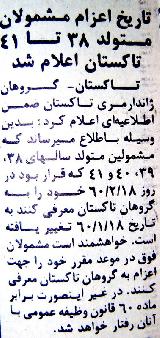 تاریخ اعزام مشمولان
متولد ۳۸ تا ۴۱
تاکستان اعلام شد
تاکستان - گروهان
ژاندارمری تاکستان ضمن
اطلاعیه‌ای اعلام کرد: بدین
وسیله باطلاع میرساند که
مشمولین متولد سالهای ۳۸،
۳۹، ۴۰ و ۴۱ که قرار بود در
روز ۶۰/۲/۱۸ خود را به
گروهان تاکستان معرفی کنند به
تاریخ ۶۰/۱/۱۸ تغییر یافته
است. خواهشمند است مشمولان
فوق در موعد مقرر خود را جهت
اعزام به گروهان تاکستان معرفی
کنند. در غیر اینصورت برابر
ماده ۶۰ قانون وظیفه عمومی با
آنان رفتار خواهد شد.